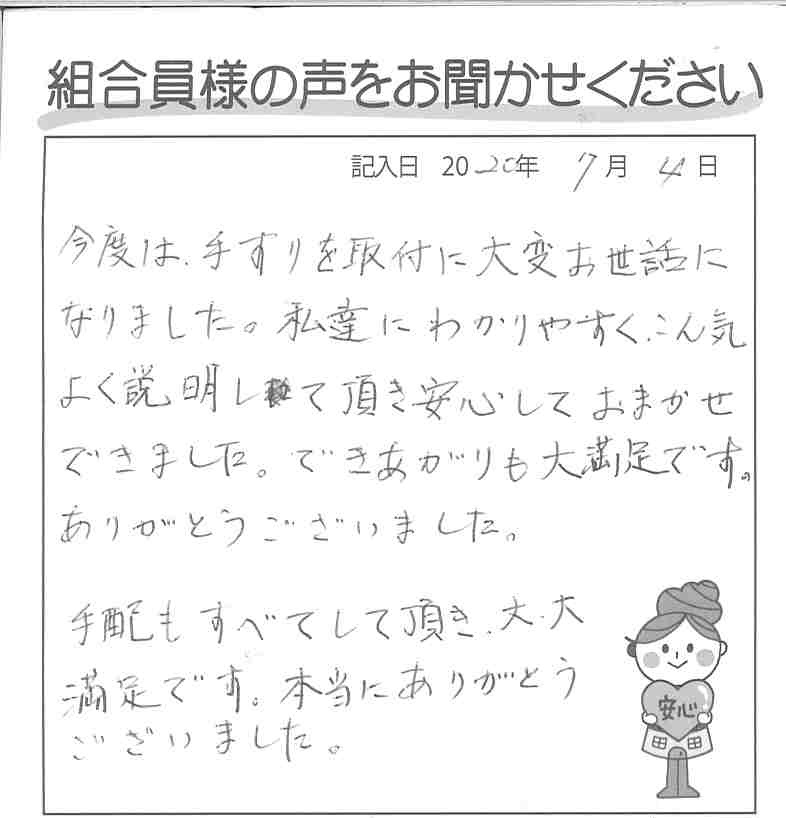 組合員様の声をお聞かせください
記入日 2020年 7月 4日
今度は、手すりを取付に大変お世話に
なりました。私達にわかりやすく、こん気
よく説明して頂き安心しておまかせ
できました。できあがりも大満足です。
ありがとうございました。
手配もすべてして頂き、大、大
満足です。本当にありがとう
ございました。
安心